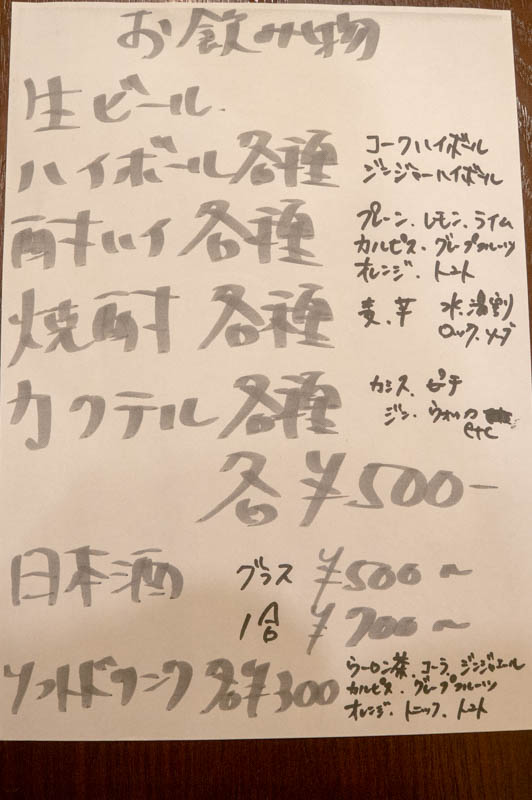 お飲み物
生ビール
ハイボール各種 コークハイボール
ジンジャーハイボール
酎ハイ各種 プレーン、レモン、ライム
カルピス、グレープフルーツ
オレンジ、トマト
焼酎 各種 麦、芋 水、湯割
ロック、ソーダ
カクテル各種 カシス、ピーチ
ジン、ウォッカ
etc
各¥500-
日本酒 グラス ¥500〜
1合 ¥700〜
ソフトドリンク 各¥300 ウーロン茶、コーラ、ジンジャエール
カルピス、グレープフルーツ
オレンジ、トニック、トマト